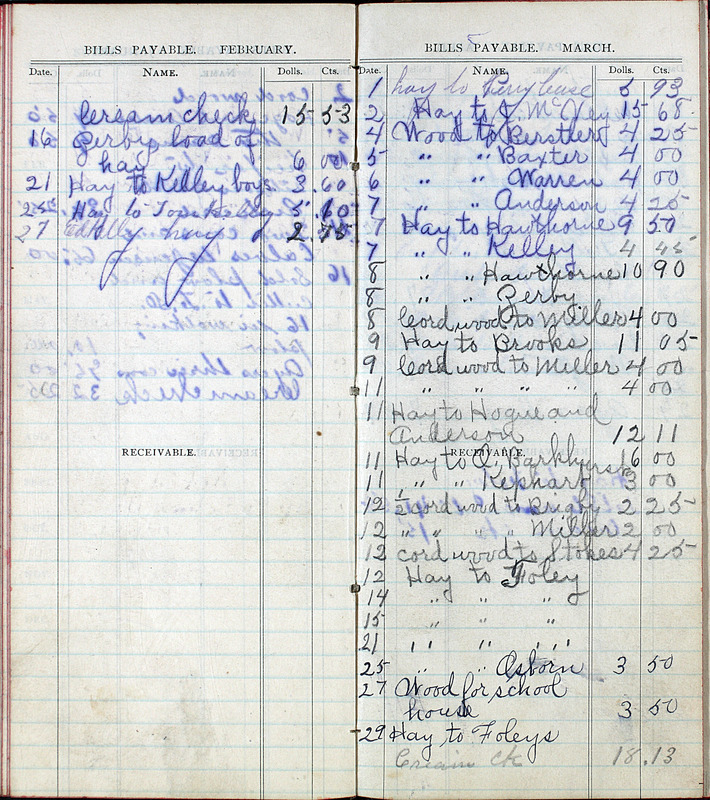 BILLS PAYABLE. FEBRUARY.
Date. NAME. Dolls. Cts.
Cream check 15 53
16 Gerby load of
hay 6 00
21 Hay to Kelley boys 3.60
Hay to Tom Kelley 5.60
27 hay 2.
RECEIVABLE.
BILLS PAYABLE. MARCH.
Date. NAME. Dolls. Cts.
1 hay to 5 93
2 Hay to J. McVey 15 68
4 Wood to Berstler 4 25
5 " " Baxter 4 00
6 " " Warren 4 00
7 " " Anderson 4 25
7 Hay to Hawthorne 9 50
7 " " Kelley 4 45
8 " " Hawthorne 10 90
8 " " Gerby
8 Cord wood to Miller 4 00
9 Hay to Brooks 11 05
9 Cord wood to Miller 4 00
11 " " " " 4 00
11 Hay to Hogue and
Anderson 12 11
RECEIVABLE.
11 Hay to O. Barkhurst 16 00
11 " " Kephart 3 00
12 ½ cord wood to Brigby 2 25
12 " " " Miller 2 00
12 cord wood to Stokes 4 25
12 Hay to Foley
14 " " "
15 " " "
21 " " "
25 " " Osborn 3 50
27 Wood for school
house 3 50
29 Hay to Foleys
Cream ck 18.13